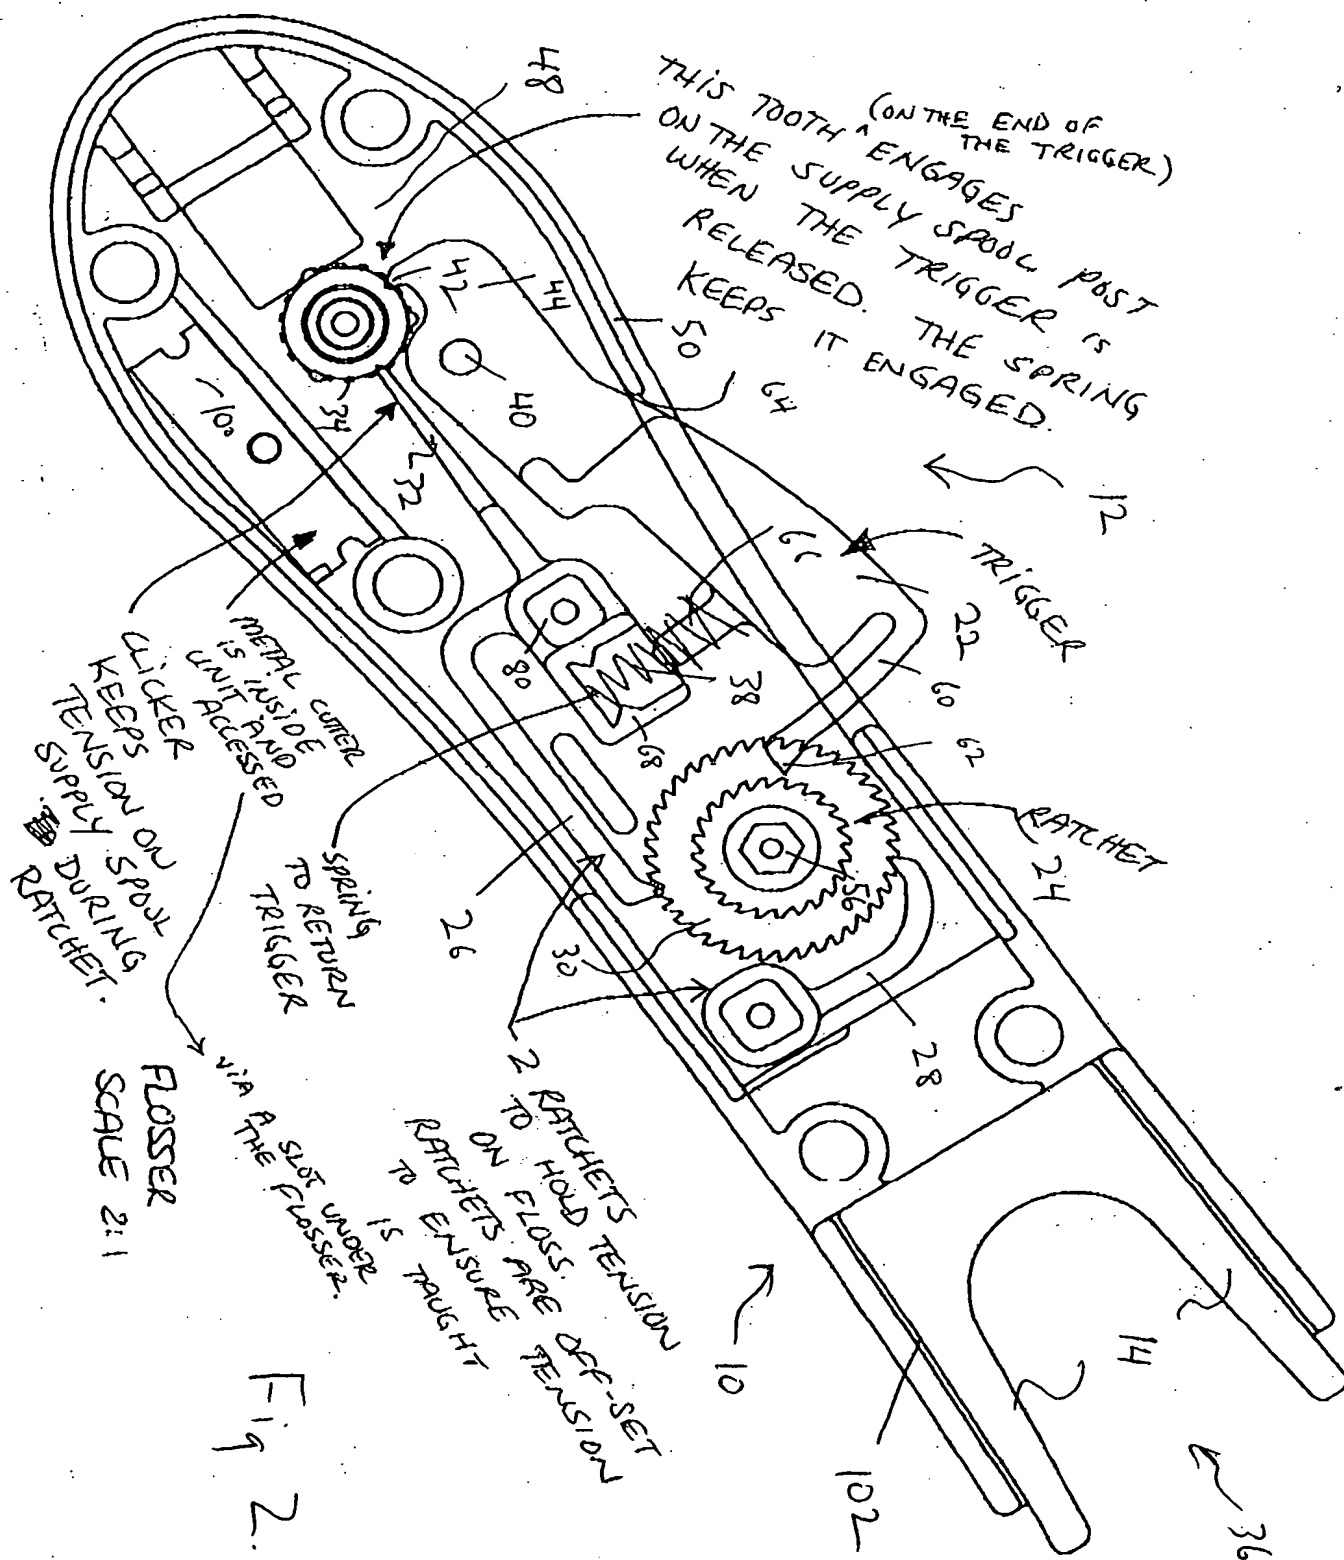 THIS TOOTH ^ ENGAGES
(ON THE END OF
THE TRIGGER)
ON THE SUPPLY SPOOL POST
WHEN THE TRIGGER IS
RELEASED. THE SPRING
KEEPS IT ENGAGED.
48
42
44
50
64
40
34
232
100
12
TRIGGER
22
61
60
62
38
80
68
RATCHET
24
56
30
26
28
CLICKER
KEEPS
TENSION ON
SUPPLY SPOOL
DURING
RATCHET.
METAL CUTTER
IS INSIDE
UNIT AND
ACCESSED
VIA A SLOT UNDER
THE FLOSSER.
SPRING
TO RETURN
TRIGGER
2 RATCHETS
TO HOLD TENSION
ON FLOSS.
RATCHETS ARE OFF-SET
TO ENSURE TENSION
IS TAUGHT
FLOSSER
SCALE 2:1
10
14
102
36
Fig 2.